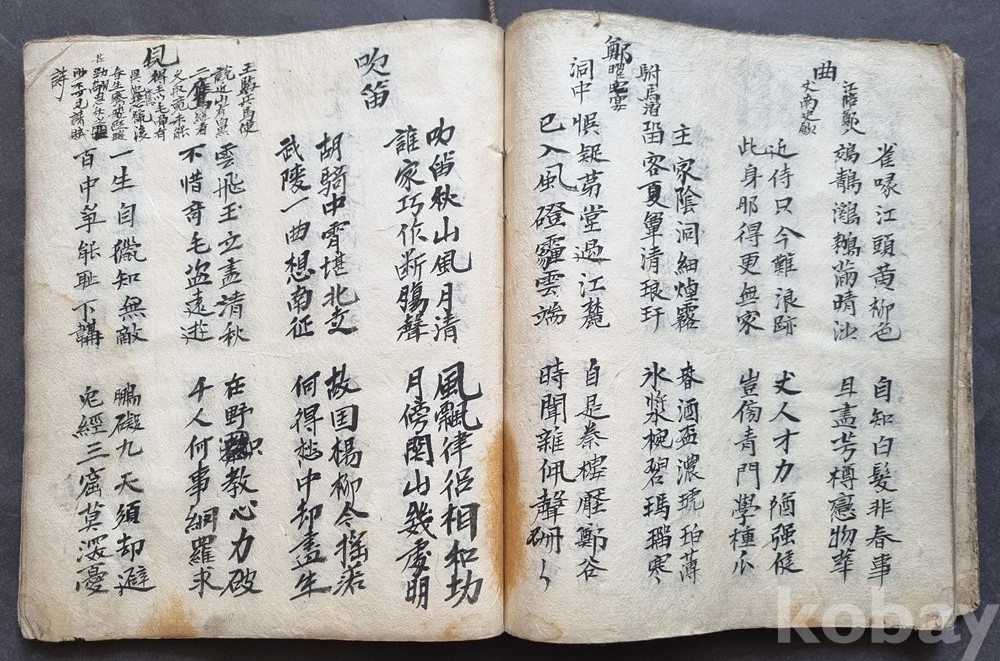 曲
江陪鄭
丈南史飲
雀啄江頭黃柳色 自知白髮非春事
鵁鶄鸂鶒滿晴沙 且盡芳樽戀物華
近侍只今難浪跡 丈人才力猶强健
此身那得更無家 豈傍青門學種瓜
鄭
駙馬潛
曜宅宴
洞中
主家陰洞細煙霧 春酒盃濃琥珀薄
留客夏簟清琅玕 氷漿椀碧瑪瑙寒
悞疑茅堂過江麓 自是秦樓壓鄭谷
已入風磴霾雲端 時聞雜佩聲珊〻
吹笛
吹笛秋山風月清 風飄律呂相和切
誰家巧作斷腸聲 月傍関山幾處明
胡騎中宵堪北走 故国楊柳今搖落
武陵一曲想南征 何得愁中却盡生
見
王監兵馬使
說近山有白黑
二鷹羅者
久取竟未能
春生騫飛避暖
詩
雲飛玉立盡清秋 在野只教心力破
不惜奇毛恣遠遊 千人何事網羅求
一生自獵知無敵 鵬礙九天須却避
百中爭能耻下韝 兎經三窟莫深憂
kobay